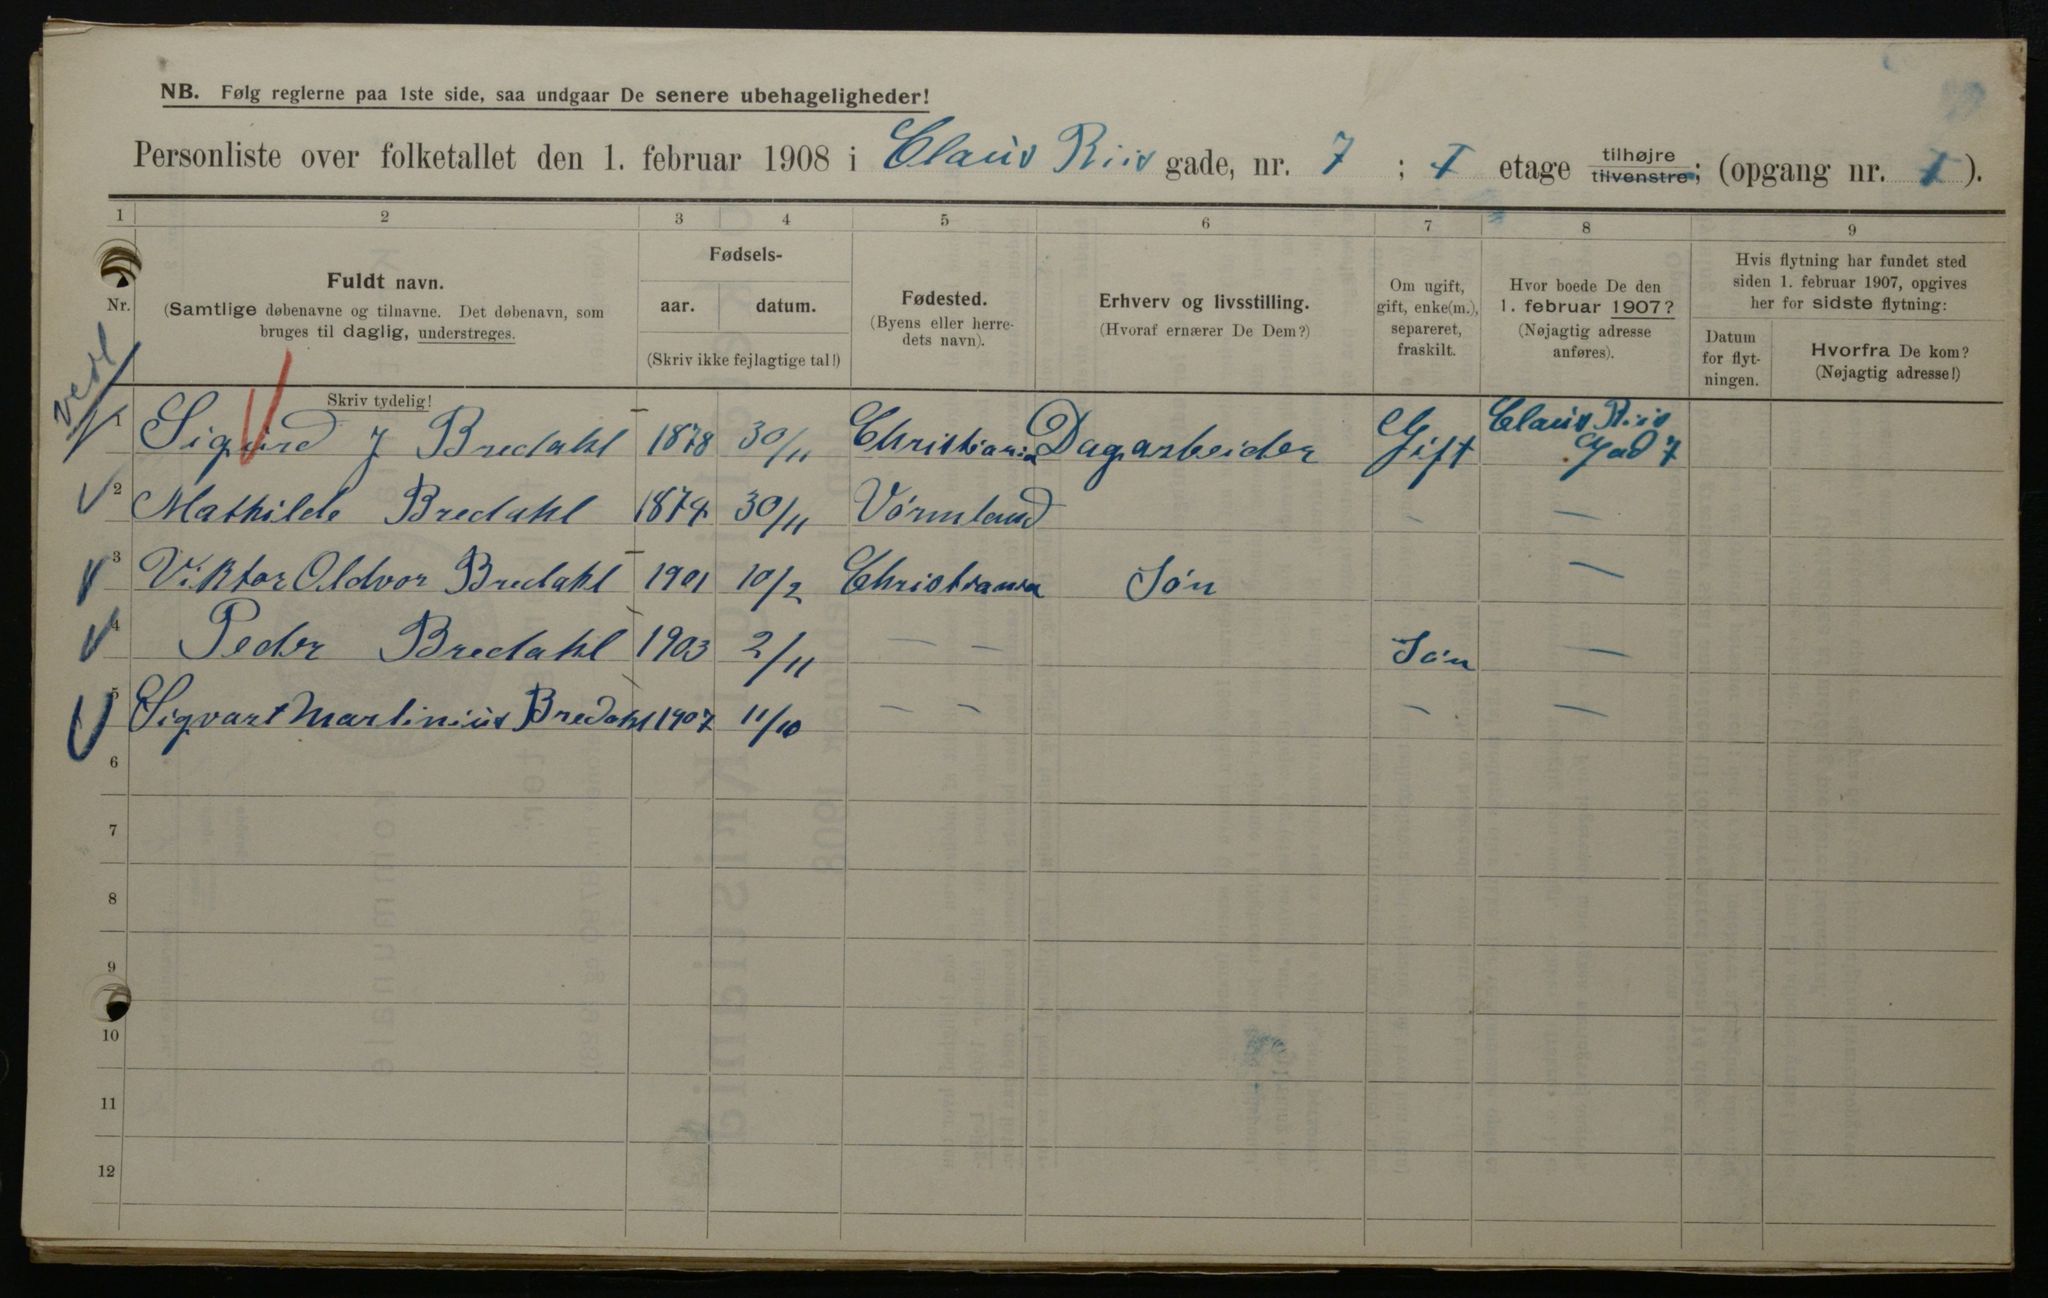 NB. Følg reglerne paa 1ste side, saa undgaar De senere ubehageligheder!
Personliste over folketallet den 1. februar 1908 i Claus Riis gade, nr. 7 ; I etage tilhøjre tilvenstre; (opgang nr. I ).
1 2 3 4 5 6 7 8 9
Nr.
Fuldt navn.
(Samtlige døbenavne og tilnavne. Det døbenavn, som
bruges til daglig, understreges.
Skriv tydelig!
Fødsels-
aar. datum.
(Skriv ikke fejlagtige tal!)
Fødested.
(Byens eller herre-
dets navn).
Erhverv og livsstilling.
(Hvoraf ernærer De Dem?)
Om ugift,
gift, enke(m.),
separeret,
fraskilt.
Hvor boede De den
1. februar 1907?
(Nøjagtig adresse
anføres).
Hvis flytning har fundet sted
siden 1. februar 1907, opgives
her for sidste flytning:
Datum
for flyt-
ningen.
Hvorfra De kom?
(Nøjagtig adresse!)
1 Sigurd J Bredahl 1878 30/11 Christiania Dagarbeider Gift Claus Riis Gad 7
2 Mathilde Bredahl 1874 30/11 Vörmland - —
3 Viktor Oldvor Bredahl 1901 10/2 Christiania Sön —
4 Peder Bredahl 1903 2/11 — — Sön —
5 Sigvart Martinius Bredahl 1907 11/10 — — - —
6
7
8
9
10
11
12